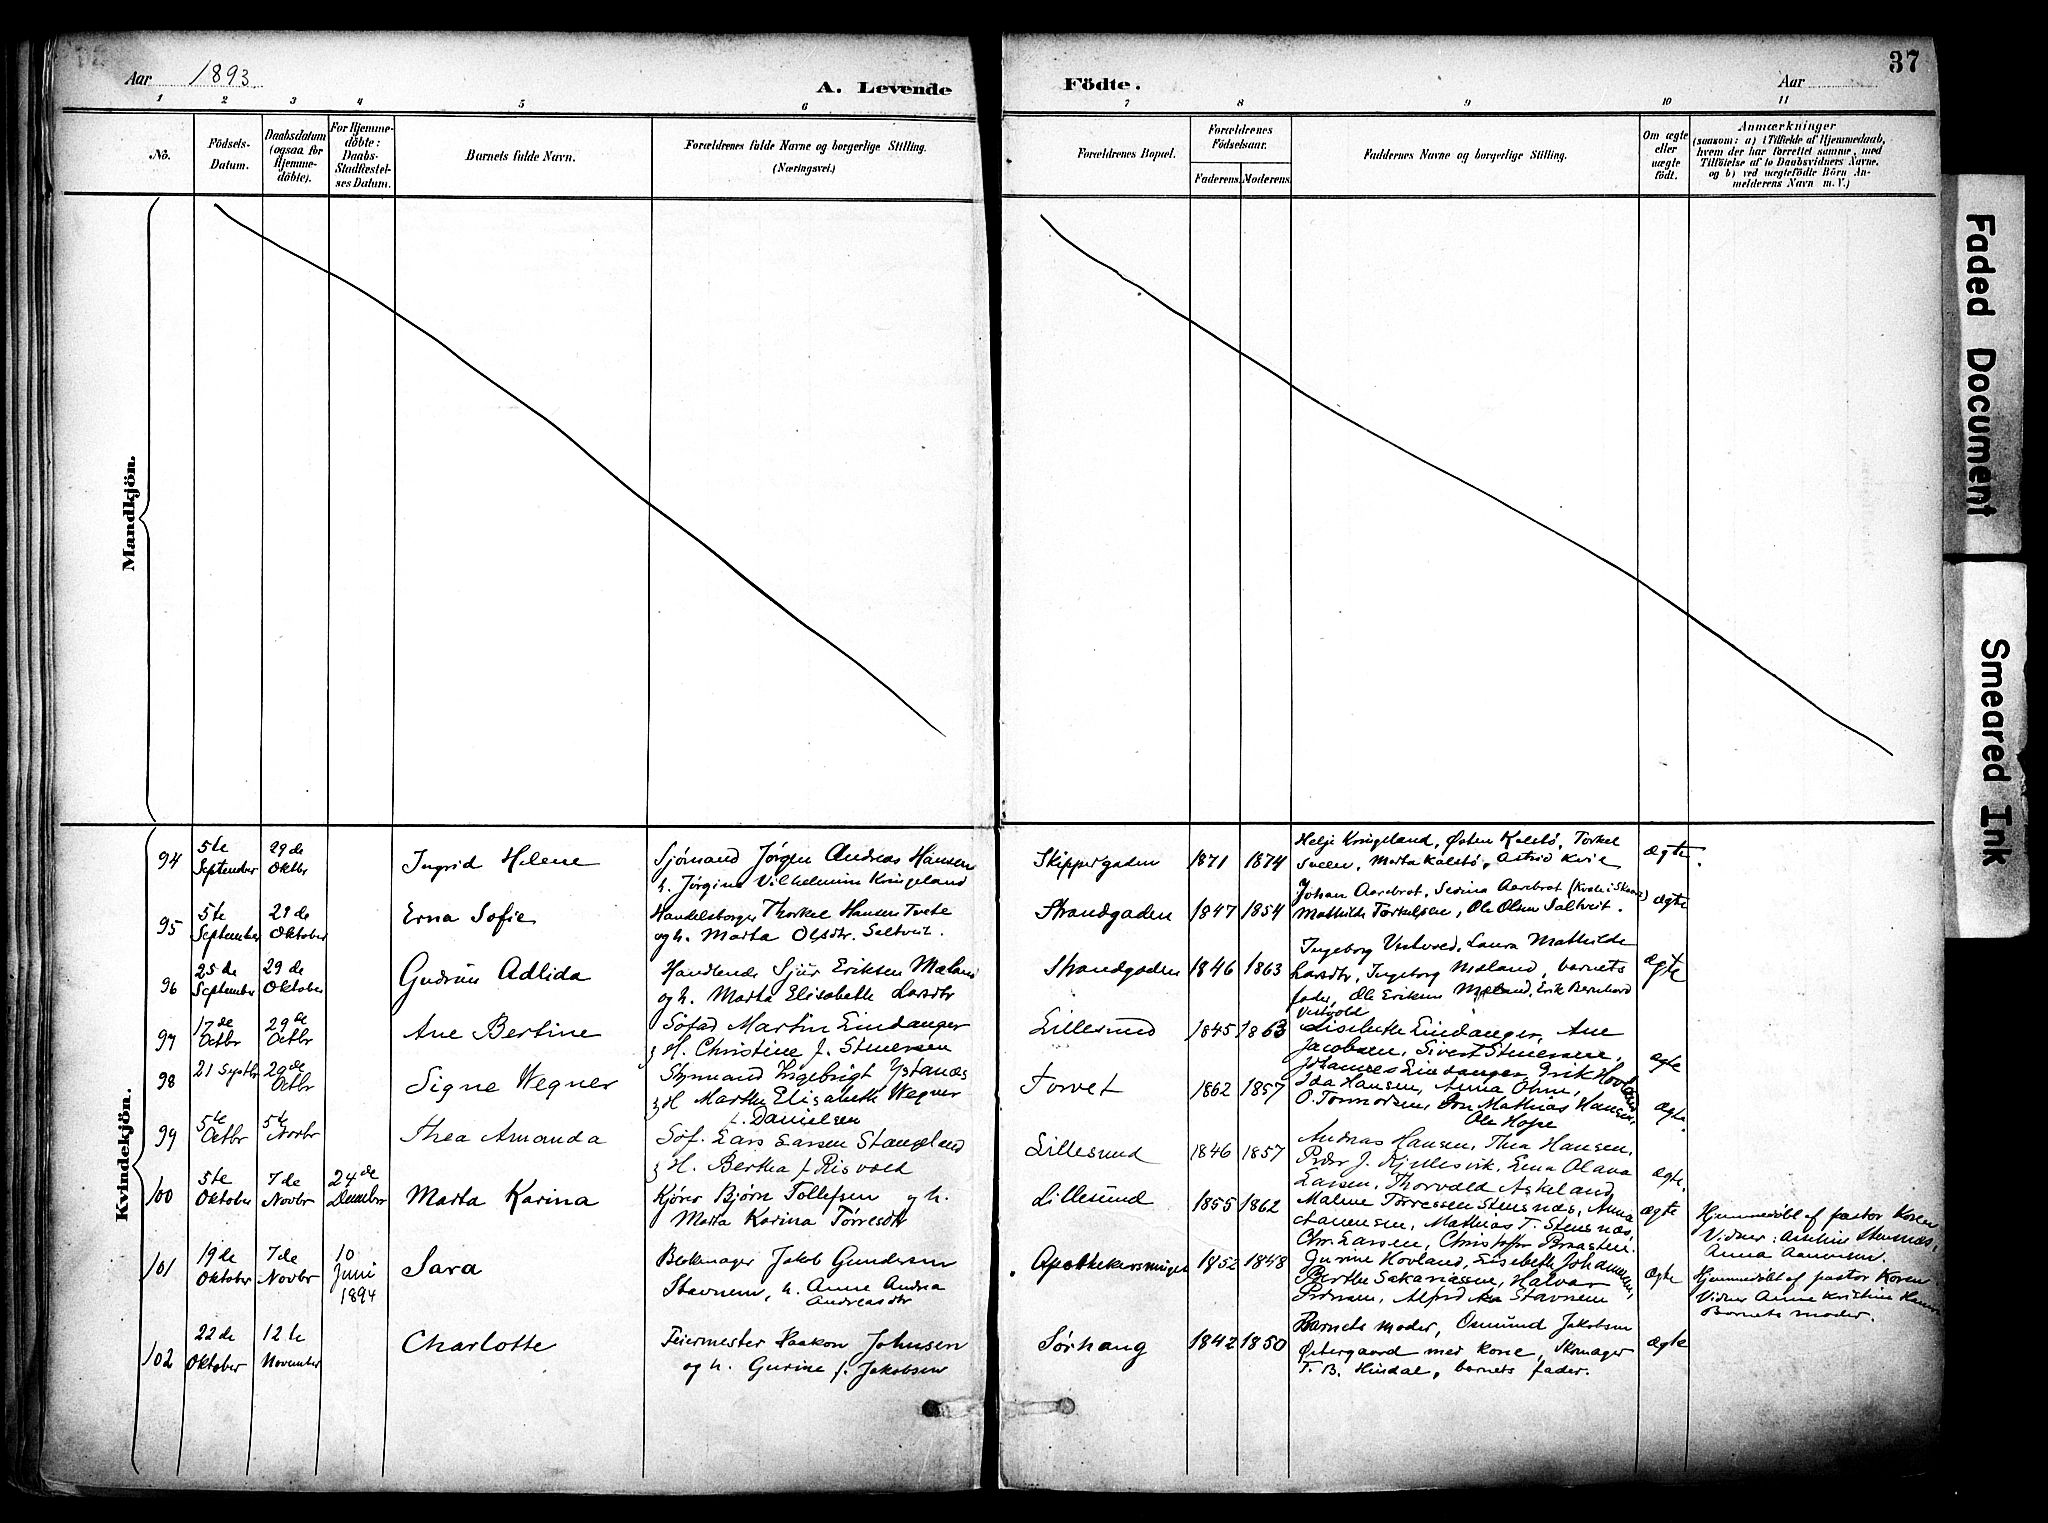 37
Aar 1893.
A. Levende
Födte.
Aar
1 2 3 4 5 6 7 8 9 10 11
No.
Födsels-
Datum.
Daabsdatum
(ogsaa for
Hjemme-
döbte).
For Hjemme-
döbte:
Daabs-
Stadfæstel-
ses Datum.
Barnets fulde Navn.
Forældrenes fulde Navne og borgerlige Stilling.
(Næringsvei.)
Forældrenes Bopæl.
Forældrenes
Födselsaar.
Faderens. Moderens.
Faddernes Navne og borgerlige Stilling.
Om ægte
eller
uægte
födt.
Anmærkninger
(saasom: a) i Tilfælde af Hjemmedaab,
hvem der har forrettet samme, med
Tilföielse af to Daabsvidners Navne,
og b) ved uægtefödte Börn An-
melderens Navn m. V.)
Mandkjön.
Kvindekjön.
94
5te
September
29de
Oktbr
Ingrid Helene
Sjómand Jörgen Andreas Hansen
h. Jörgine Vilhelmine Kringeland
Skippergaden
1871 1874
Helje Kringeland, Östen Kalstö, Torkel
Sveen, Marta Kalstö, Astrid Kvie
Ægte.
95
5te
September
29de
Oktober
Erna Sofie
Handelsborger Thorkel Hansen Tvete
og h. Marta Olsdtr. Saltveit.
Strandgaden
1847 1854
Johan Aarebrot, Serina Aarebrot
Mathilde Torkelsen, Ole Olsen Saltveit.
ægte
96
25de
September
29de
Oktober
Gudrun Adlida
Handlende Sjur Eriksen Mæland
og h. Marta Elisabeth Larsdtr
Strandgaden
1846 1863
Ingeborg Vestvold, Laura Mathilde
Larsdtr, Ingeborg Mæland, barnets
fader, Ole Eriksen Mæland, Erik Bernhard
Vestvold
ægte
97
17de
Octbr
29de
Octbr
Ane Bertine
Söfad Martin Eindanger
& H. Christine f. Stuersen
Lillesund
1845 1863
Lisebethe Eindanger, Ane
Jacobsen, Sivert Stuersen,
Johannes Eindanger, Erik Hovland
ægte
98
21 Septbr
29de
Octbr
Signe Wegner
Styrmand Ingebrigt Ystanæs
& H. Marthe Elisabeth Wegner
f. Danielsen
Torvet
1862 1857
Ida Hansen, Anna Ohm,
O. Tormodsen, Jon Mathias Hansen,
Ole Hope
Ægte.
99
5te
Octbr
5te
Novbr
Thea Amanda
Söf. Lars Larsen Stangeland
& H. Bertha f. Risvold
Lillesund
1846 1857
Andreas Hansen, Thea Hansen,
Peder J. Kjellesvik, Lena Olava
Larsen, Thorvald Askeland
ægte.
100
5te
Oktober
7de
Novbr
24de
Decembr
Marta Karina
Kjörer Björn Tollefsen og h.
Marta Karina Törresdtr
Lillesund
1855 1862
Malene Torressen Stensnæs, Anna
Aanensen, Mathias T. Stensnæs,
Chr. Larsen, Christoffer Braasten.
Ægte
Hjemmedöbt af pastor Koren
Vidner: Stensnæs,
Anna Aanensen.
101
19de
Oktober
7de
Novbr
10
Juni
1894
Sara
Blokmager Jakob Gundersen
Stavnem, h. Anne Andrea
Andreasdtr
Apothekersmuget
1852 1848
Gurine Hovland, Elisebeth Johannesen,
Berthe Sakariasen, Halvar
Pedersen, Alfred Stavnem
Ægte
Hjemmedöbt af pastor Koren.
Vidner Anne Kristine
Barnets moder.
102
22de
Oktober
12te
November
Charlotte
Feiermester Haakon Johnsen
og h. Gurine f. Jakobsen
Sörhaug
1842 1850
Barnets moder, Osmund Jakobsen
Östergaard med kone, Skomager
T. B. Hindal, barnets fader.
Ægte
Faded Document
Smeared Ink